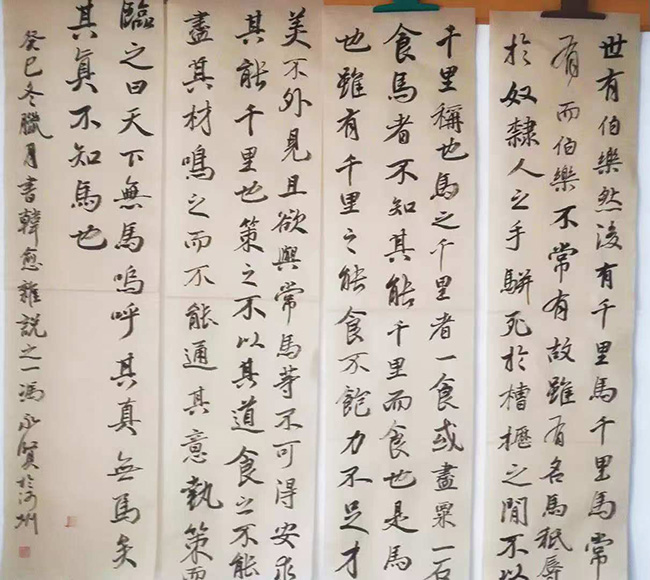 世有伯樂然後有千里馬千里馬常
有而伯樂不常有故雖有名馬秖辱
於奴隸人之手駢死於槽櫪之間不以
千里稱也馬之千里者一食或盡粟一石
食馬者不知其能千里而食也是馬
也雖有千里之能食不飽力不足才
美不外見且欲與常馬等不可得安求
其能千里也策之不以其道食之不能
盡其材鳴之而不能通其意執策而
臨之曰天下無馬嗚呼其真無馬矣
其眞不知馬也
癸巳冬臘月書韓愈雜説之一馮永賢於河州